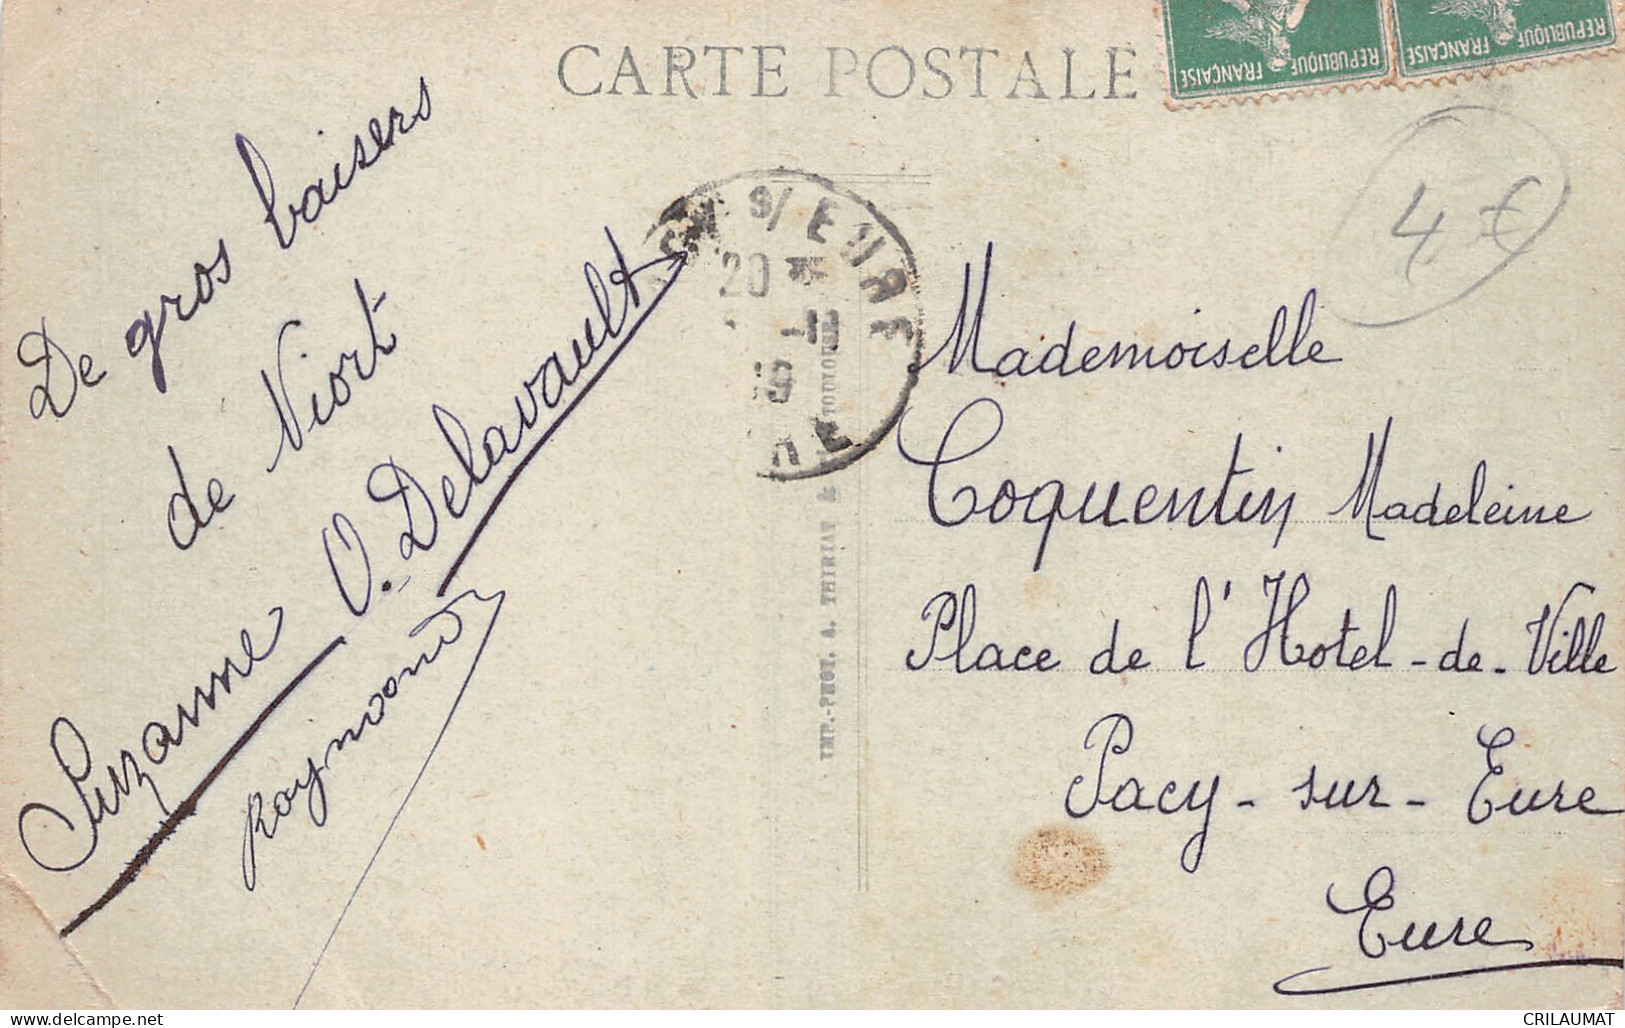 CARTE POSTALE
REPUBLIQUE FRANÇAISE
REPUBLIQUE FRANÇAISE
4 €
De gros baisers
de Niort
Suzanne O. Delavault
Raymond
S/ EURE
20
IMP.-PHOT. A. THIRIAT & TOULOUSE
Mademoiselle
Coquentin Madeleine
Place de l'Hotel-de-Ville
Pacy-sur-Eure
Eure
CRILAUMAT